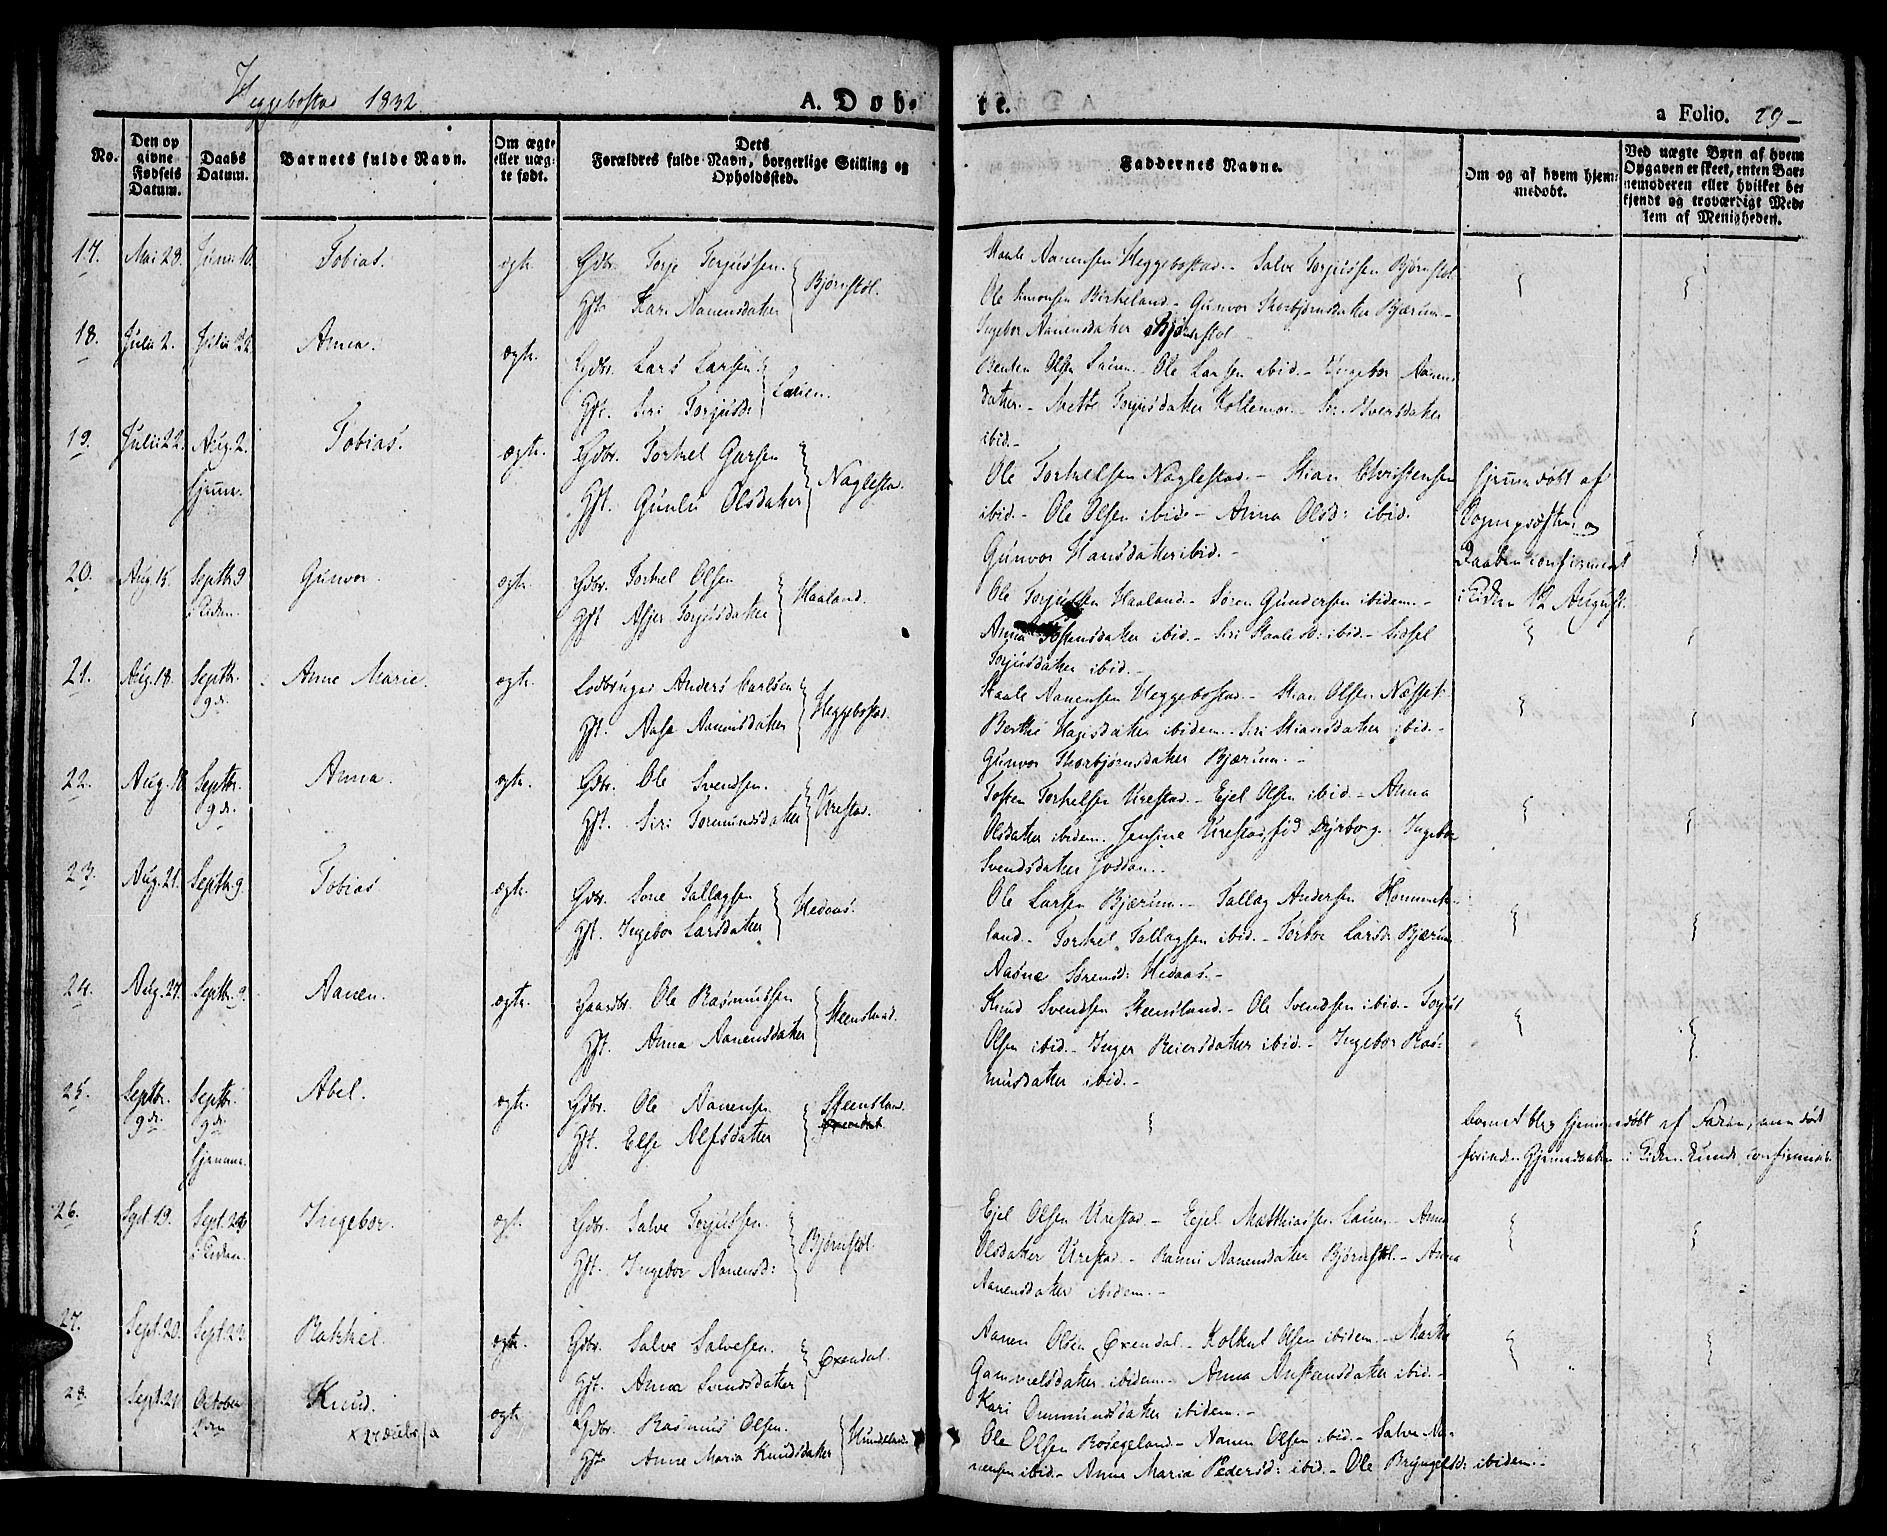 Heggebostad 1832.
A. Døb-
te.
a Folio. 29-
No.
Den op
givne
Fødsels
Datum.
Daabs
Datum.
Barnets fulde Navn.
Om ægte
eller uæg-
te født.
Dets
Forældres fulde Navn, borgerlige Stilling og
Opholdssted.
Faddernes Navne.
Om og af hvem hjem-
medøbt.
Ved uægte Børn af hvem
Opgaven er skeet, enten Bar-
nemoderen eller hvilket be
kjendt og troværdigt Med-
lem af Menigheden.
17. Mai 28. Juni 10. Tobias. egte. Gdbr. Torje Torjussen.
Gjst. Kari Aanensdatter } Bjørnstøl.
Staale Aanensen Heggebostad. - Salve Torjussen Bjørnstøl
Ole Simonsen Birkeland - Gunvor Thorbjørnsdatter Bjærum -
Ingebor Aanensdatter Bjørnstøl -
18. Julii 2. Julii 22. Anna. ægte. Gdbr. Lars Larsen.
Gjst. Siri Torjusd: } Lauen.
Benten Olsen Lauen. - Ole Larsen ibid. - Ingebor Aanens
datter. - Torjusdatter - Iversdatter
ibid. -
19. Julii 22. Aug. 2. hjemme. Tobias. ægte. Gdbr. Torkel Garsen
Gjst. Gunlu Olsdatter } Naglestad
Ole Torkelsen Naglestad. - Stian Christensen
ibid. - Ole Olsen ibid - Anna Olsd: ibid.
Gunvor Hansdatter ibid. -
hjemmedøbt af
og
Daaben confirmeret
i Kirken 12 August.
20. Aug. 15. Septbr 9 i Kirken. Gunvor. egte. Gdbr. Torkel Olsen
Gjst Asjer Torjusdatter } Haaland.
Ole Torjussen Haaland. - Søren Gundersen ibidem. -
Anna Tostensdatter ibid. - Siri Staalesd: ibid. - Sidsel
Torjusdatter ibid. -
21. Aug. 18. Septbr. 9de. Anne Marie. egte. Anders Carlsen
Gjst. Aasa Aanensdatter } Heggebostad.
Staale Aanensen Heggebostad. - Stian Olsen Næsset
Berthe Hagesdatter ibidem. - Siri Stiansdatter ibid. -
Gunvor Thorbjørnsdatter Bjærum. -
22. Aug. 18 Septbr. 9de. Anna. egte. Gdbr. Ole Svendsen.
Gjst. Siri Tormundsdatter } Urestad.
Tosten Torkelsen Urestad. - Ejel Olsen ibid - Anna
Olsdatter ibidem. Jensine Urestad fød Dyrborg. Ingebor
Svendsdatter Joddan. -
23. Aug. 21. Septbr. 9. Tobias ægte. Gdbr. Sone Tallagsen
Gjst. Ingebor Larsdatter } Hedaas.
Ole Larsen Bjærum. - Tallag Andersen Homme-
land. - Torkel Tallagsen ibid. - Torbor Larsd: Bjærum
Aasne Sørensd: Hedaas. -
24. Aug. 27. Septbr. 9. Aanen. ægte. Gaardbr. Ole Rasmussen
Gjst. Anna Aanensdatter } Steensland.
Knud Svendsen Steensland. - Ole Svendsen ibid. - Torjus
Olsen ibid. - Inger Reiersdatter ibid. - Ingebor Ras-
musdatter ibid. -
25. Septbr. 9de. Septbr. 9de. hjemme. Abel. ægte. Gdbr. Ole Aanensen
Gjst. Else Alfsdatter } Steensland.
barnet blev hjemmedøbt af Faderen, men døde
forinden Hjemmedaaben i Kirken kunde confirmeres.
26. Sept 19. Sept. 23 i Kirken. Ingebor. egt. Gdbr. Salve Torjussen.
Gjst. Ingebor Aanensd: } Bjørnstøl
Ejel Olsen Urestad - Ejel Matthiassen Lauen - Anna
Olsdatter Urestad. - Ranni Aanensdatter Bjørnstøl - Anna
Aanensdatter ibidem. -
27. Sept. 20. Sept. 23 Rakkel. ægte. Gdbr. Salve Salvesen.
Gjst. Anna Svendsdatter } Oxendal.
Aanen Olsen Oxendal. - Kolbent Olsen ibidem. - Marthe
Gammelsdatter ibidem. - Anna Austensdatter ibid. -
Kari Ommundsdatter ibidem. -
28. Sept. 21 October Knud. ægte. Gdbr. Rasmus Olsen.
Gjst. Anne Maria Knudsdatter } Hundeland.
Ole Olsen Rosegeland. - Aanen Olsen ibid. - Salve Aa-
nensen ibid. - Anne Maria Pedersd: ibid. - Ole Bryngelsd: ibidem. -